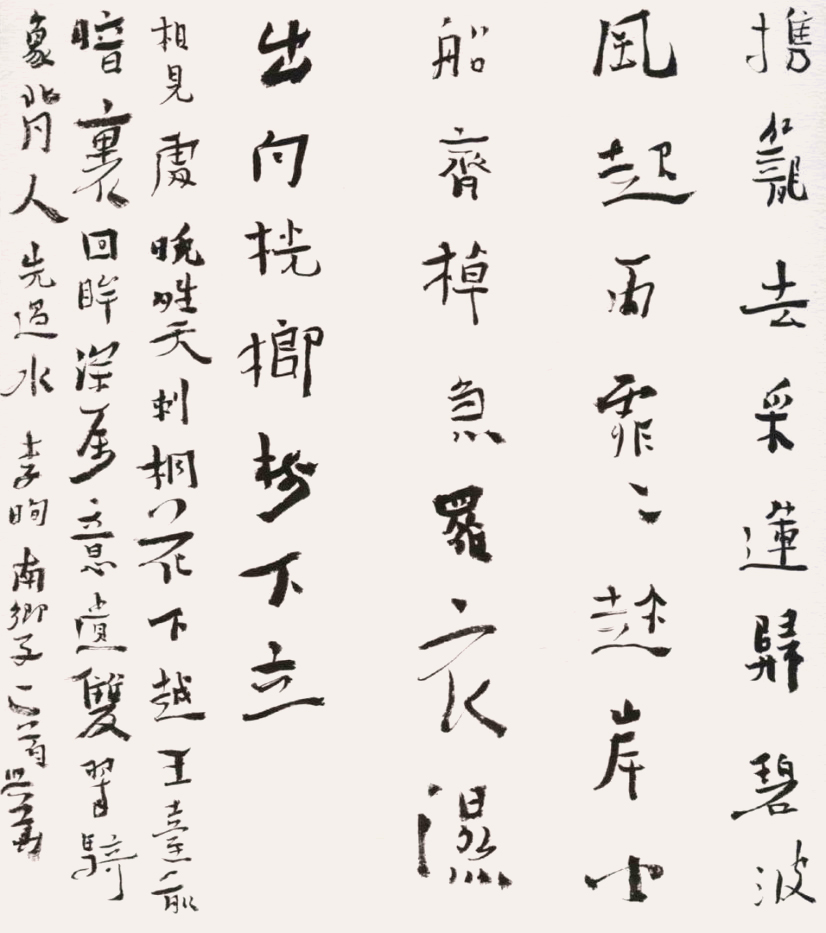 携籠去采蓮歸碧波
風起雨霏〻趂岸小
船齊棹急羅衣濕
出向桄榔樹下立
相見處晚晴天刺桐花下越王臺前
暗裏回眸深属意遺雙翠騎
象背人先過水 李珣南鄉子二首